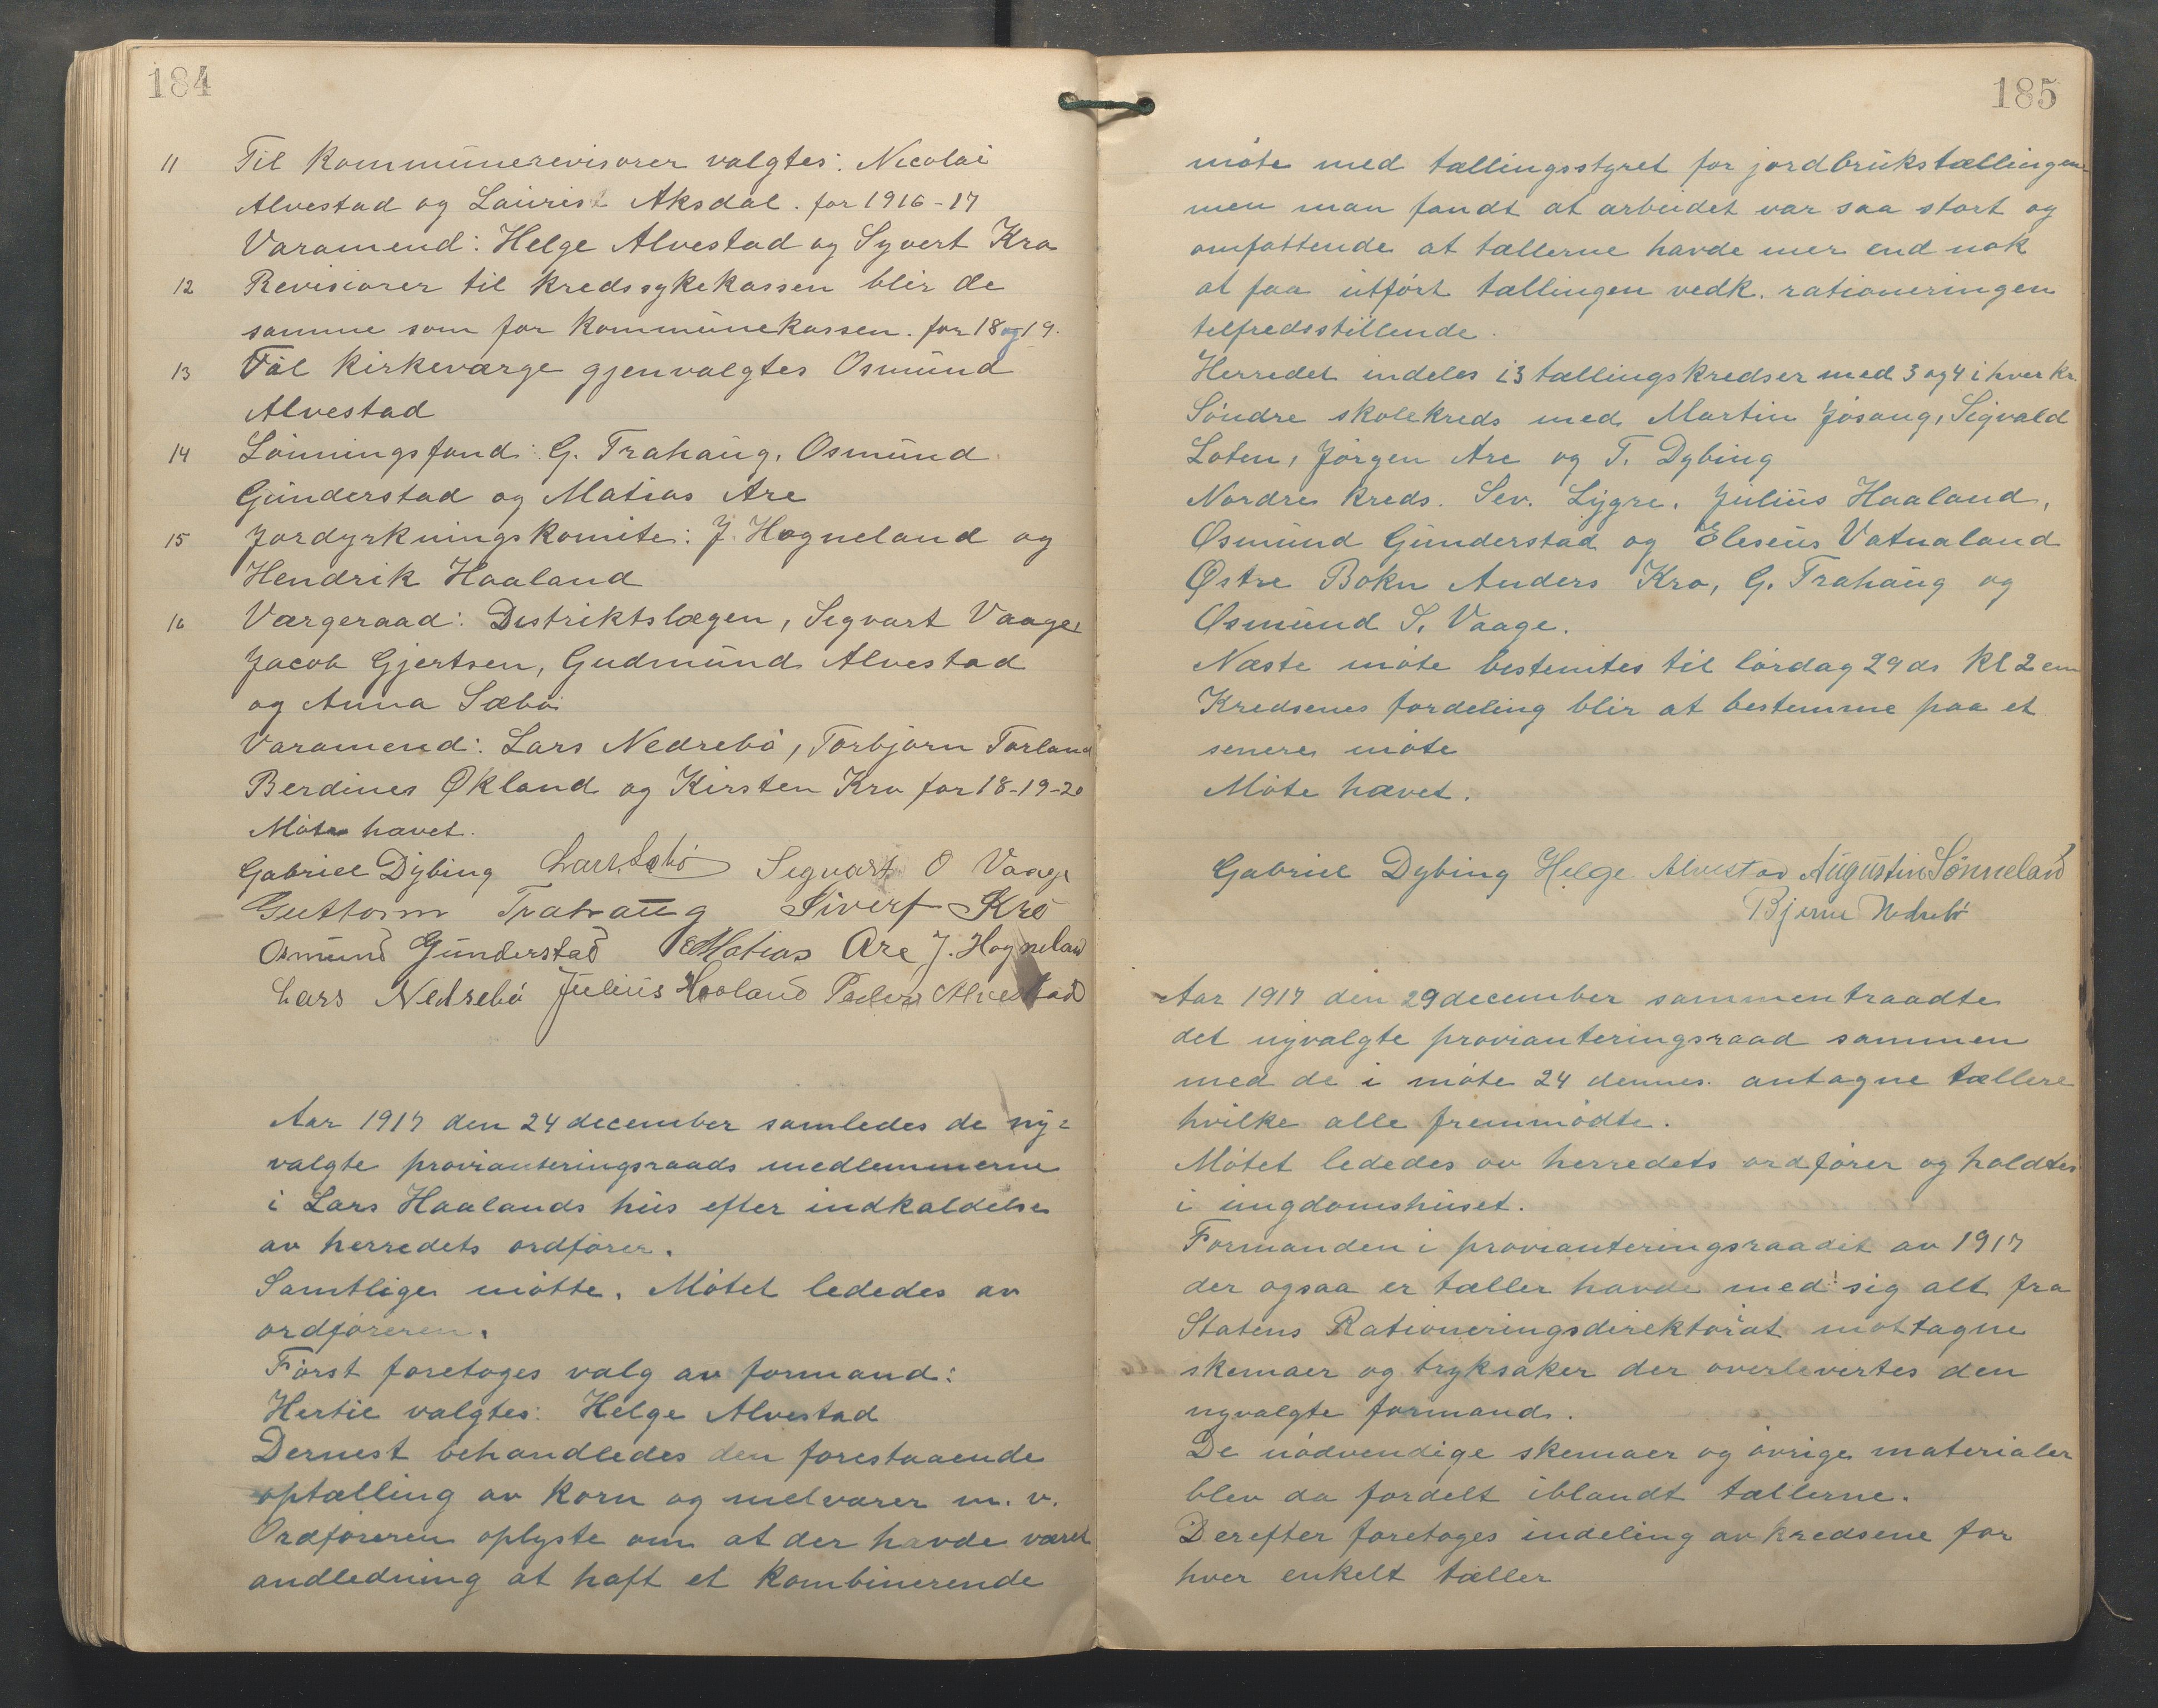 184
11 Til Kommunerevisorer valgtes: Nicolai
Alvestad og Laurist Aksdal. for 1916-17
Varamend: Helge Alvestad og Syvert Kro
12 Revisiorer til Kredssykekassen blir de
samme som for Kommunekassen. for 18 og 19.
13 Til Kirkeværge gjenvalgtes Osmund
Alvestad
14 Lönningsfond: G. Trahaug, Osmund
Gunderstad og Matias Are
15 Jordyrkningskomite: J. Hogneland og
Hendrik Haaland
16 Værgeraad: Distriktslægen, Sigvart Vaage,
Jacob Gjertsen, Gudmund Alvestad
og Anna Sæbö
Varamend: Lars Nedrebö, Torbjörn Torland
Berdines Økland og Kirsten Kro for 18-19-20
Möte hævet.
Gabriel Dybing Lars Sebö Segvart O Vaage
Guttorm Trahaug Sivert Kro
Osmund Gunderstad Matias Are J. Hogneland
Lars Nedrebö Julius Haaland Peder Alvestad
Aar 1917 den 24 december samledes de ny-
valgte provianteringsraads medlemmerne
i Lars Haalands hus efter indkaldelse
av herredets ordförer.
Samtlige mötte. Mötet lededes av
ordföreren.
Först foretoges valg av formand:
Hertil valgtes: Helge Alvestad
Dernest behandledes den forestaaende
optælling av Korn og melvarer m. v.
Ordföreren oplyste om at der havde været
andledning at haft et Kombinerende
185
möte med tællingsstyret for jordbrukstællingen
men man fandt at arbeidet var saa stort og
omfattende at tællerne havde mer end nok
at faa utfört tællingen vedk. rationeringen
telfredsstillende.
Herredet indeles i 3 tællingskredser med 3 og 4 i hver kr.
Söndre skolekreds med Martin Jösang, Sigvald
Loten, Jörgen Are og T. Dybing
Nordre Kreds. Sev. Lygre, Julius Haaland,
Osmund Gunderstad og Eleseus Vatnaland
Østre Bokn Anders Kro, G. Trahaug og
Osmund S. Vaage.
Næste möte bestemtes til lördag 29 ds Kl 2 em
Kredsenes fordeling blir at bestemme paa et
senere möte
Möte hævet.
Gabriel Dybing Helge Alvestad Augustin Sönneland
Bjerne Nedrebö
Aar 1917 den 29 december sammentraadte
det nyvalgte provianteringsraad sammen
med de i möte 24 dennes. antagne tællere
hvilke alle fremmödte.
Mötet lededes av herredets ordförer og holdtes
i ungdomshuset.
Formanden i provianteringsraadet av 1917
der ogsaa er tæller havde med sig alt fra
Statens Rationeringsdirektorat mottagne
skemaer og tryksaker der overlevertes den
nyvalgte formand.
De nödvendige skemaer og övrige materialer
blev da fordelt iblandt tællerne.
Derefter foretoges indeling av kredsene for
hver enkelt tæller